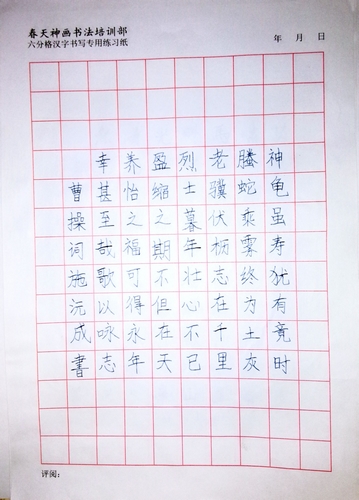 春天神画书法培训部
六分格汉字书写专用练习纸
年 月 日
神龟虽寿犹有竟时
腾蛇乘雾终为土灰
老骥伏枥志在千里
烈士暮年壮心不已
盈缩之期不但在天
养怡之福可得永年
幸甚至哉歌以咏志
曹操词施沅成書
评阅：